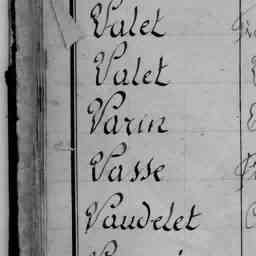 Valet
Valet
Varin
Vasse
Vaudelet